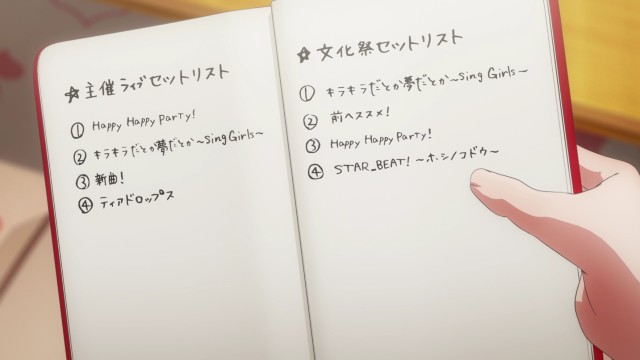 ☆主催ライブセットリスト
① Happy Happy Party!
② キラキラだとか夢だとか〜Sing Girls〜
③ 新曲!
④ ティアドロップス
☆文化祭セットリスト
① キラキラだとか夢だとか〜Sing Girls〜
② 前へススメ!
③ Happy Happy Party!
④ STAR_BEAT!〜ホシノコドウ〜